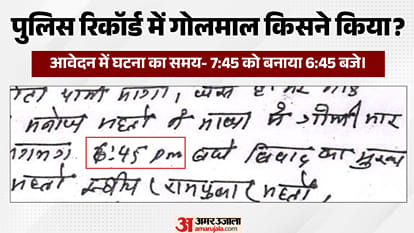 पुलिस रिकॉर्ड में गोलमाल किसने किया?
आवेदन में घटना का समय- 7:45 को बनाया 6:45 बजे।
मनोज महतो ने माथा में गोली मार
6:45 pm बजे विवाद का मुख्य
महतो स्वर्गीय (रामपुकार महतो,
अ अमर उजाला
amarujala.com